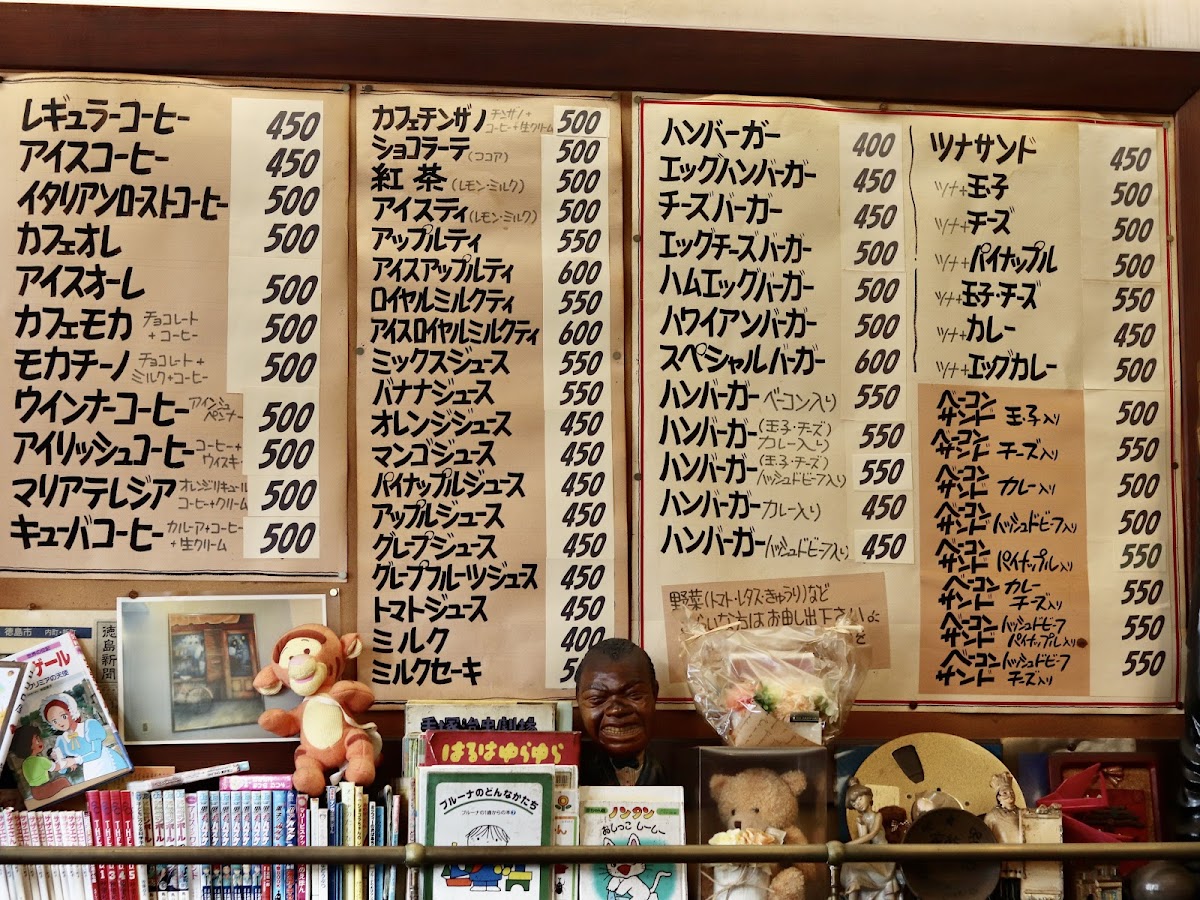 レギュラーコーヒー 450
アイスコーヒー 450
イタリアンローストコーヒー 500
カフェオレ 500
アイスオーレ 500
カフェモカ チョコレート+コーヒー 500
モカチーノ チョコレート+ミルク+コーヒー 500
ウインナーコーヒー アインシュペンナー 500
アイリッシュコーヒー コーヒー+ウィスキー 500
マリアテレジア オレンジリキュール コーヒー+クリーム 500
キューバコーヒー カルーア+コーヒー+生クリーム 500
カフェチンザノ チンザノ+コーヒー+生クリーム 500
ショコラーテ(ココア) 500
紅茶(レモン・ミルク) 500
アイスティ(レモン・ミルク) 500
アップルティ 550
アイスアップルティ 600
ロイヤルミルクティ 550
アイスロイヤルミルクティ 600
ミックスジュース 550
バナナジュース 550
オレンジジュース 450
マンゴジュース 450
パイナップルジュース 450
アップルジュース 450
グレープジュース 450
グレープフルーツジュース 450
トマトジュース 450
ミルク 400
ミルクセーキ
ハンバーガー 400
エッグハンバーガー 450
チーズバーガー 450
エッグチーズバーガー 500
ハムエッグバーガー 500
ハワイアンバーガー 500
スペシャルバーガー 600
ハンバーガー ベーコン入り 550
ハンバーガー(玉子・チーズ)カレー入り) 550
ハンバーガー(玉子・チーズ)ハッシュドビーフ入り) 550
ハンバーガー カレー入り) 450
ハンバーガー ハッシュドビーフ入り) 450
野菜(トマト・レタス・きゅうり)など
な方はお申し出下さい
ツナサンド 450
ツナ+玉子 500
ツナ+チーズ 500
ツナ+パイナップル 500
ツナ+玉子・チーズ 550
ツナ+カレー 450
ツナ+エッグカレー 500
ベーコンサンド 玉子入り 500
ベーコンサンド チーズ入り 550
ベーコンサンド カレー入り 500
ベーコンサンド ハッシュドビーフ入り 500
ベーコンサンド パイナップル入り 550
ベーコンサンド カレーチーズ入り 550
ベーコンサンド ハッシュドビーフパイナップル入り 550
ベーコンサンド ハッシュドビーフチーズ入り 550
徳島市
徳島新聞
クリミアの天使
はるはゆらゆら
ブルーナのどんなかたち
ブルーナの1歳からの本
ノンタン
おしっこしーしー